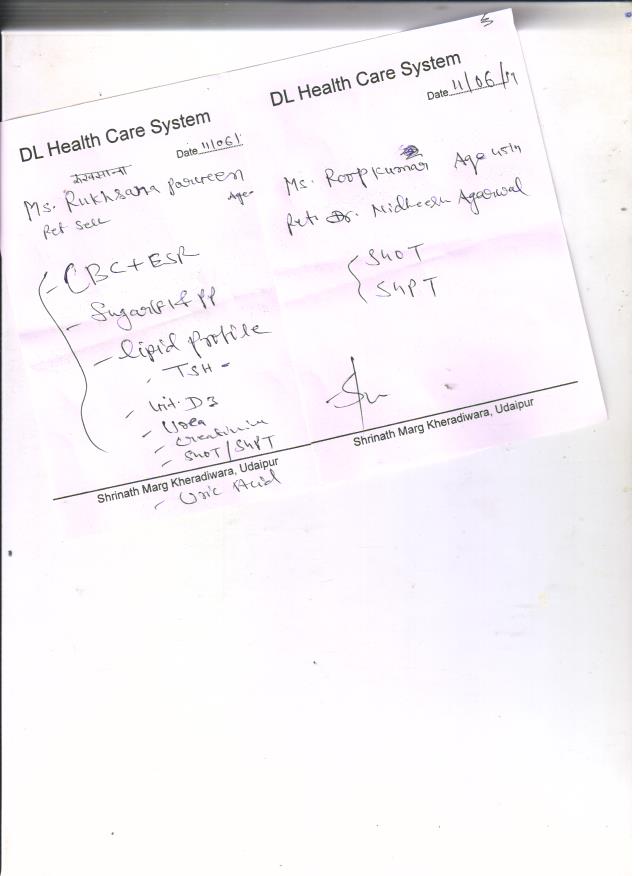 DL Health Care System
Date 11/06/
रुखसाना
Ms. Rukhsana parveen
Age-
Ref Self
- CBC + ESR
- Sugar F & PP
- lipid profile
- TSH -
- Vit. D3
- Urea
- Creatinin
- SGOT/SGPT
Shrinath Marg Kheradiwara, Udaipur
- Uric Acid
DL Health Care System
Date 11/06/19
Ms. Roop kumar Age
Ref: Dr. Nidheesh Agarwal
SGOT
SGPT
Shrinath Marg Kheradiwara, Udaipur